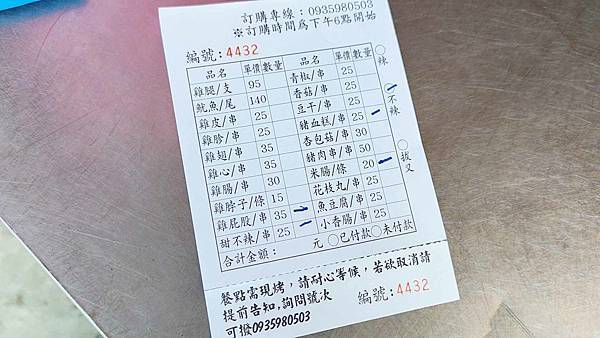 訂購專線：0935980503
※訂購時間為下午6點開始
編號:4432
品名 單價 數量 品名 單價 數量 ○辣
雞腿/支 95 青椒/串 25
魷魚/尾 140 香菇/串 25 不辣
雞皮/串 25 豆干/串 25
雞胗/串 25 豬血糕/串 25
雞翅/串 35 杏包菇/串 30 ○拔叉
雞心/串 35 豬肉串/串 50
雞腸/串 30 米腸/條 20
雞脖子/條 15 花枝丸/串 25
雞屁股/串 35 魚豆腐/串 25
甜不辣/串 25 小香腸/串 25
合計金額： 元 ○已付款○未付款
餐點需現烤，請耐心等候，若欲取消請
提前告知,詢問號次 編號:4432
可撥0935980503